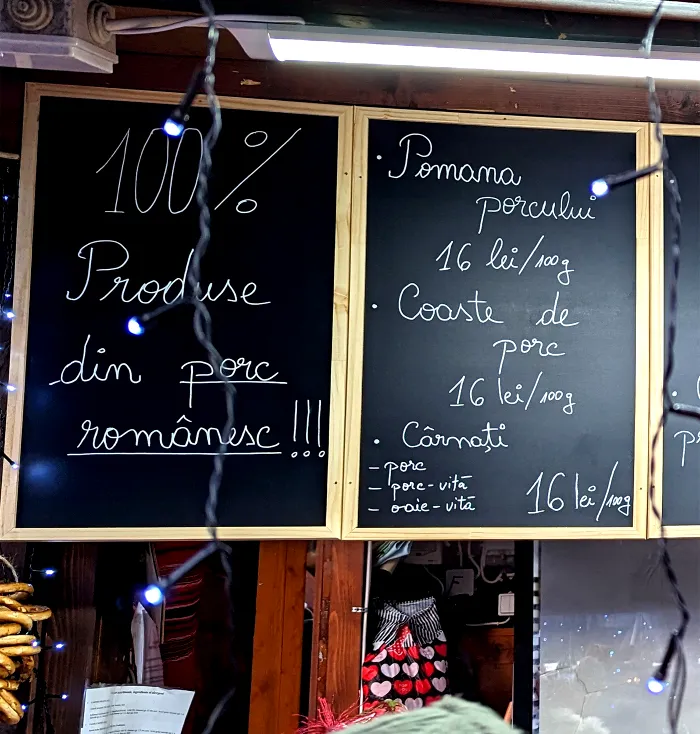 100%
Produse
din porc
românesc!!!
• Pomana
porcului
16 lei/100g
• Coaste de
porc
16 lei/100g
• Cârnați
- porc
- porc-vită
- oaie-vită
16 lei/100g